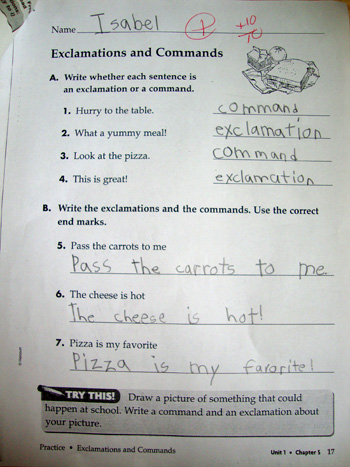 Name Isabel + +10
Exclamations and Commands
A. Write whether each sentence is
an exclamation or a command.
1. Hurry to the table. command
2. What a yummy meal! exclamation
3. Look at the pizza. command
4. This is great! exclamation
B. Write the exclamations and the commands. Use the correct
end marks.
5. Pass the carrots to me
Pass the carrots to me
6. The cheese is hot
The cheese is hot!
7. Pizza is my favorite
Pizza is my favorite!
TRY THIS! Draw a picture of something that could
happen at school. Write a command and an exclamation about
your picture.
Practice • Exclamations and Commands Unit 1 • Chapter 5 17